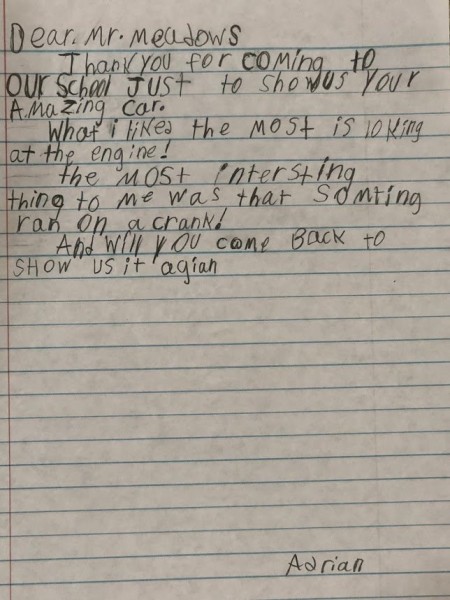 Dear. Mr. Meadows
Thank you for coming to
our school Just to show us your
Amazing car.
What i liked the most is loking
at the engine!
the most intersting
thing to me was that somting
ran on a crank!
And will you come Back to
show us it agian
Adrian